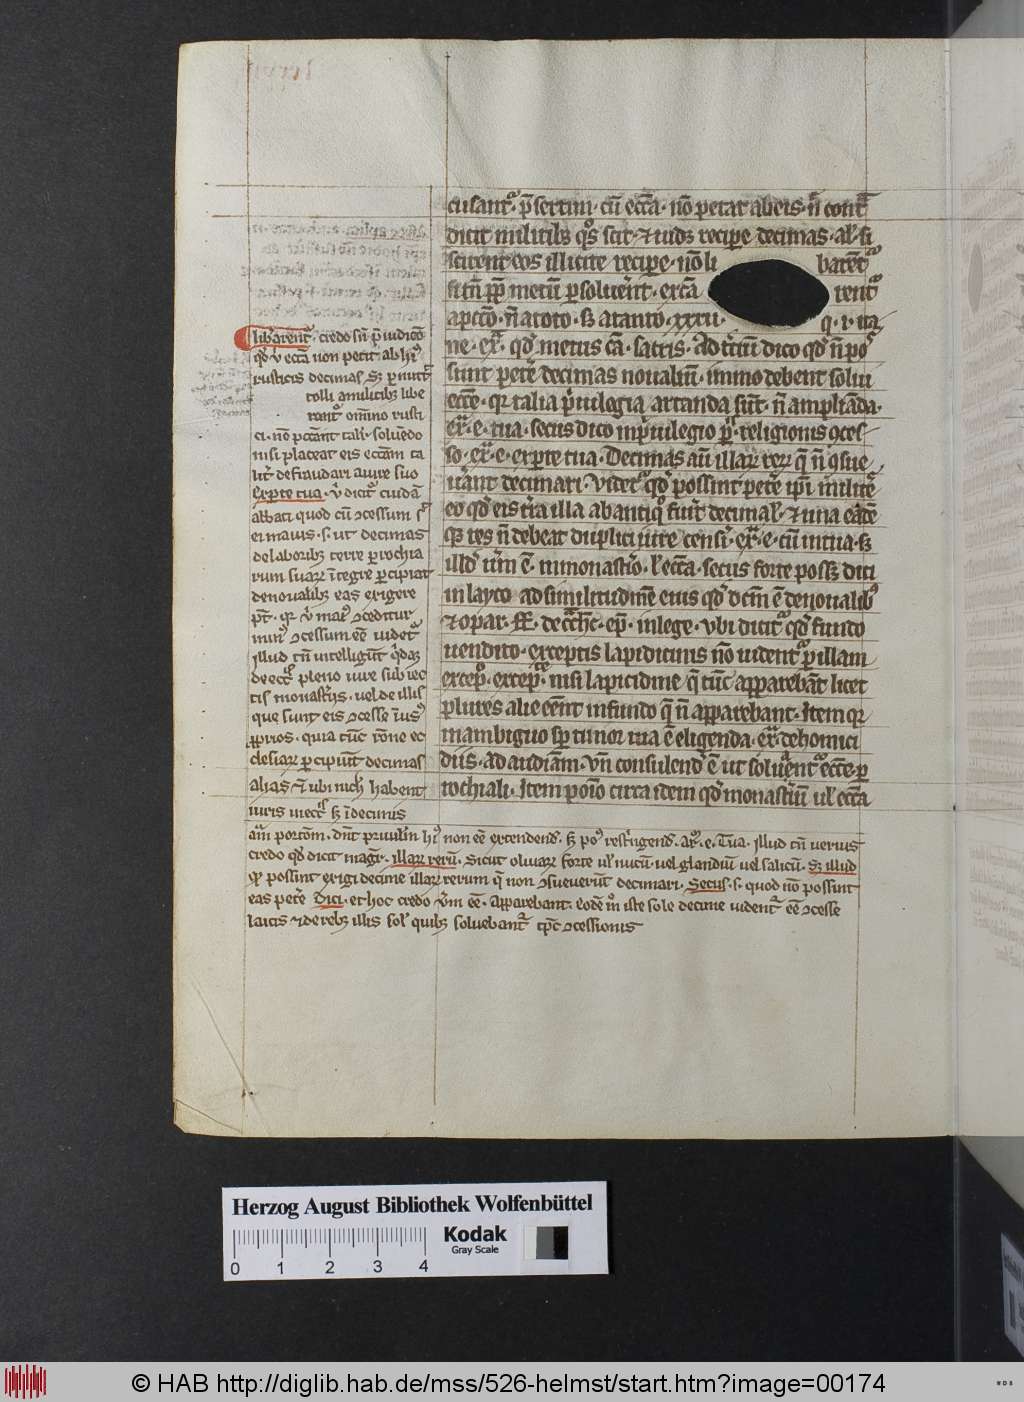 cusant᷑. p̄sertim. cū ecc̄a. nō petat ab eis. n̄
dicit militib᷒ qd̓s scit ⁊ iud᷒ recipe decimas. al̓ si
scirent eos illicite recipe. nō li barēt᷑
si tn̄ ꝓpt̓ metū ꝑsoluerit. extᷓa rent᷑
a ꝑcc̄o. n̄ a toto. sꝫ a tanto. xxxii. q. i. ita
ne. ex̄. qd̓ metus cā. satis. Ad t̓tiū dico qd̓ n̄ pos
sunt petē decimas noualiū. immo debent solui
ecc̄e. qr̄ talia p̓uilegia artanda sūt. n̄ amplianda.
ex̄. e. tua. secus dico in p̓uilegio religionis ꝯces
so. ex̄. e. ex parte tua. Decimas aūt illaꝝ reꝝ q̄ n̄ ꝯsue
uerant decimari. Videt᷑ qd̓ possint petē ip̄i milites
eo qd̓ eis t̓ra illa ab antiq̊ fuit decimal. ⁊ una eadē
qꝫ res n̄ debeat duplici iure censeri. ex̄. e. cū in tua. sꝫ
illd̓ uerum ē. in monast̓io. ul̓ ecc̄a. secus forte possꝫ dici
in layco ad similitudinē eius qd̓ dictū ē de noualib᷒
⁊ opar. ff. de cᵒtᵃh. ep̄. in lege. vbi dicit᷑ qd̓ fundo
uendito. exceptis lapidicinis nō uident᷑ ꝑ illam
exceptionē excepte. nisi lapicidine q̄ tūc apparebāt licet
plures alie eēnt in fundo q̄ n̄ apparebant. Item qr̄
in ambiguo sp̄ tutior uia ē eligenda. ex̄. de homici
diis. ad audiam. Vn̄ consulend̓ ē ut soluant᷑ ecc̄e. ꝑ
rochiali. Item pono circa idem qd̓ monast̓iū ul̓ ecc̄a
lib̓arent᷑. credo sn̄ p̄iudicio
qd̓ ꝟ ecc̄a non petit ab hiis
rusticis decimas sꝫ ꝑmittit
tolli a militib᷒ libe
rent᷑ omīno rusti
ci. nō pccant tali soluendo
nisi placeat eis ecc̄am ta
lit̓ defraudari a iure suo
Ex parte tua. ꝟ dicit᷑ cuidā
abbati quod cū ꝯcessum s̓
ei mauis. s. ut decimas
de laborib᷒ terre ꝑrochia
rum suaꝝ īntegre ꝑcipiat
de noualib᷒ eas exigere
pt̄. qr̄ ꝟ mai᷒ ꝯceditur
min᷒ ꝯcessum eē uidet᷑
illud tn̄ intelligūt q̓daꝫ
de ecc̄is pleno iure subiec
tis monast̓iis. uel de illis
que sunt eis ꝯcesse in us᷒
ꝓprios. quia tūc rōne ec
clesiaꝝ ꝑcipiūt decimas
alias ⁊ ubi nich̓ habent
iuris in ecc̄is sꝫ ī decimis
am̄ portōm. dn̄t p̓uilm̄ hi᷒ non eē extendend̓. sꝫ poti᷒ rest̓ngend̓. ar̄. e. Tua. Illud tn̄ verius
credo qd̓ dicit magr̄. illaꝝ rerū. Sicut oliuaꝝ forte ul̓ nucū. uel glandiū uel salicū. sꝫ illud
qd̓ possint exigi decime illaꝝ rerum q̄ non ꝯsueuerūt decimari. Secus. s. quod nō possint
eas petē. Dici. et hoc credo uerum eē. Apparebant. eodē mō iste sole decime uident᷑ eē ꝯcesse
laicis ⁊ de reb᷒ illis sol̓ quib᷒ soluebant᷑ tp̄e ꝯcessionis
Herzog August Bibliothek Wolfenbüttel
0 1 2 3 4
Kodak
Gray Scale
© HAB http://diglib.hab.de/mss/526-helmst/start.htm?image=00174